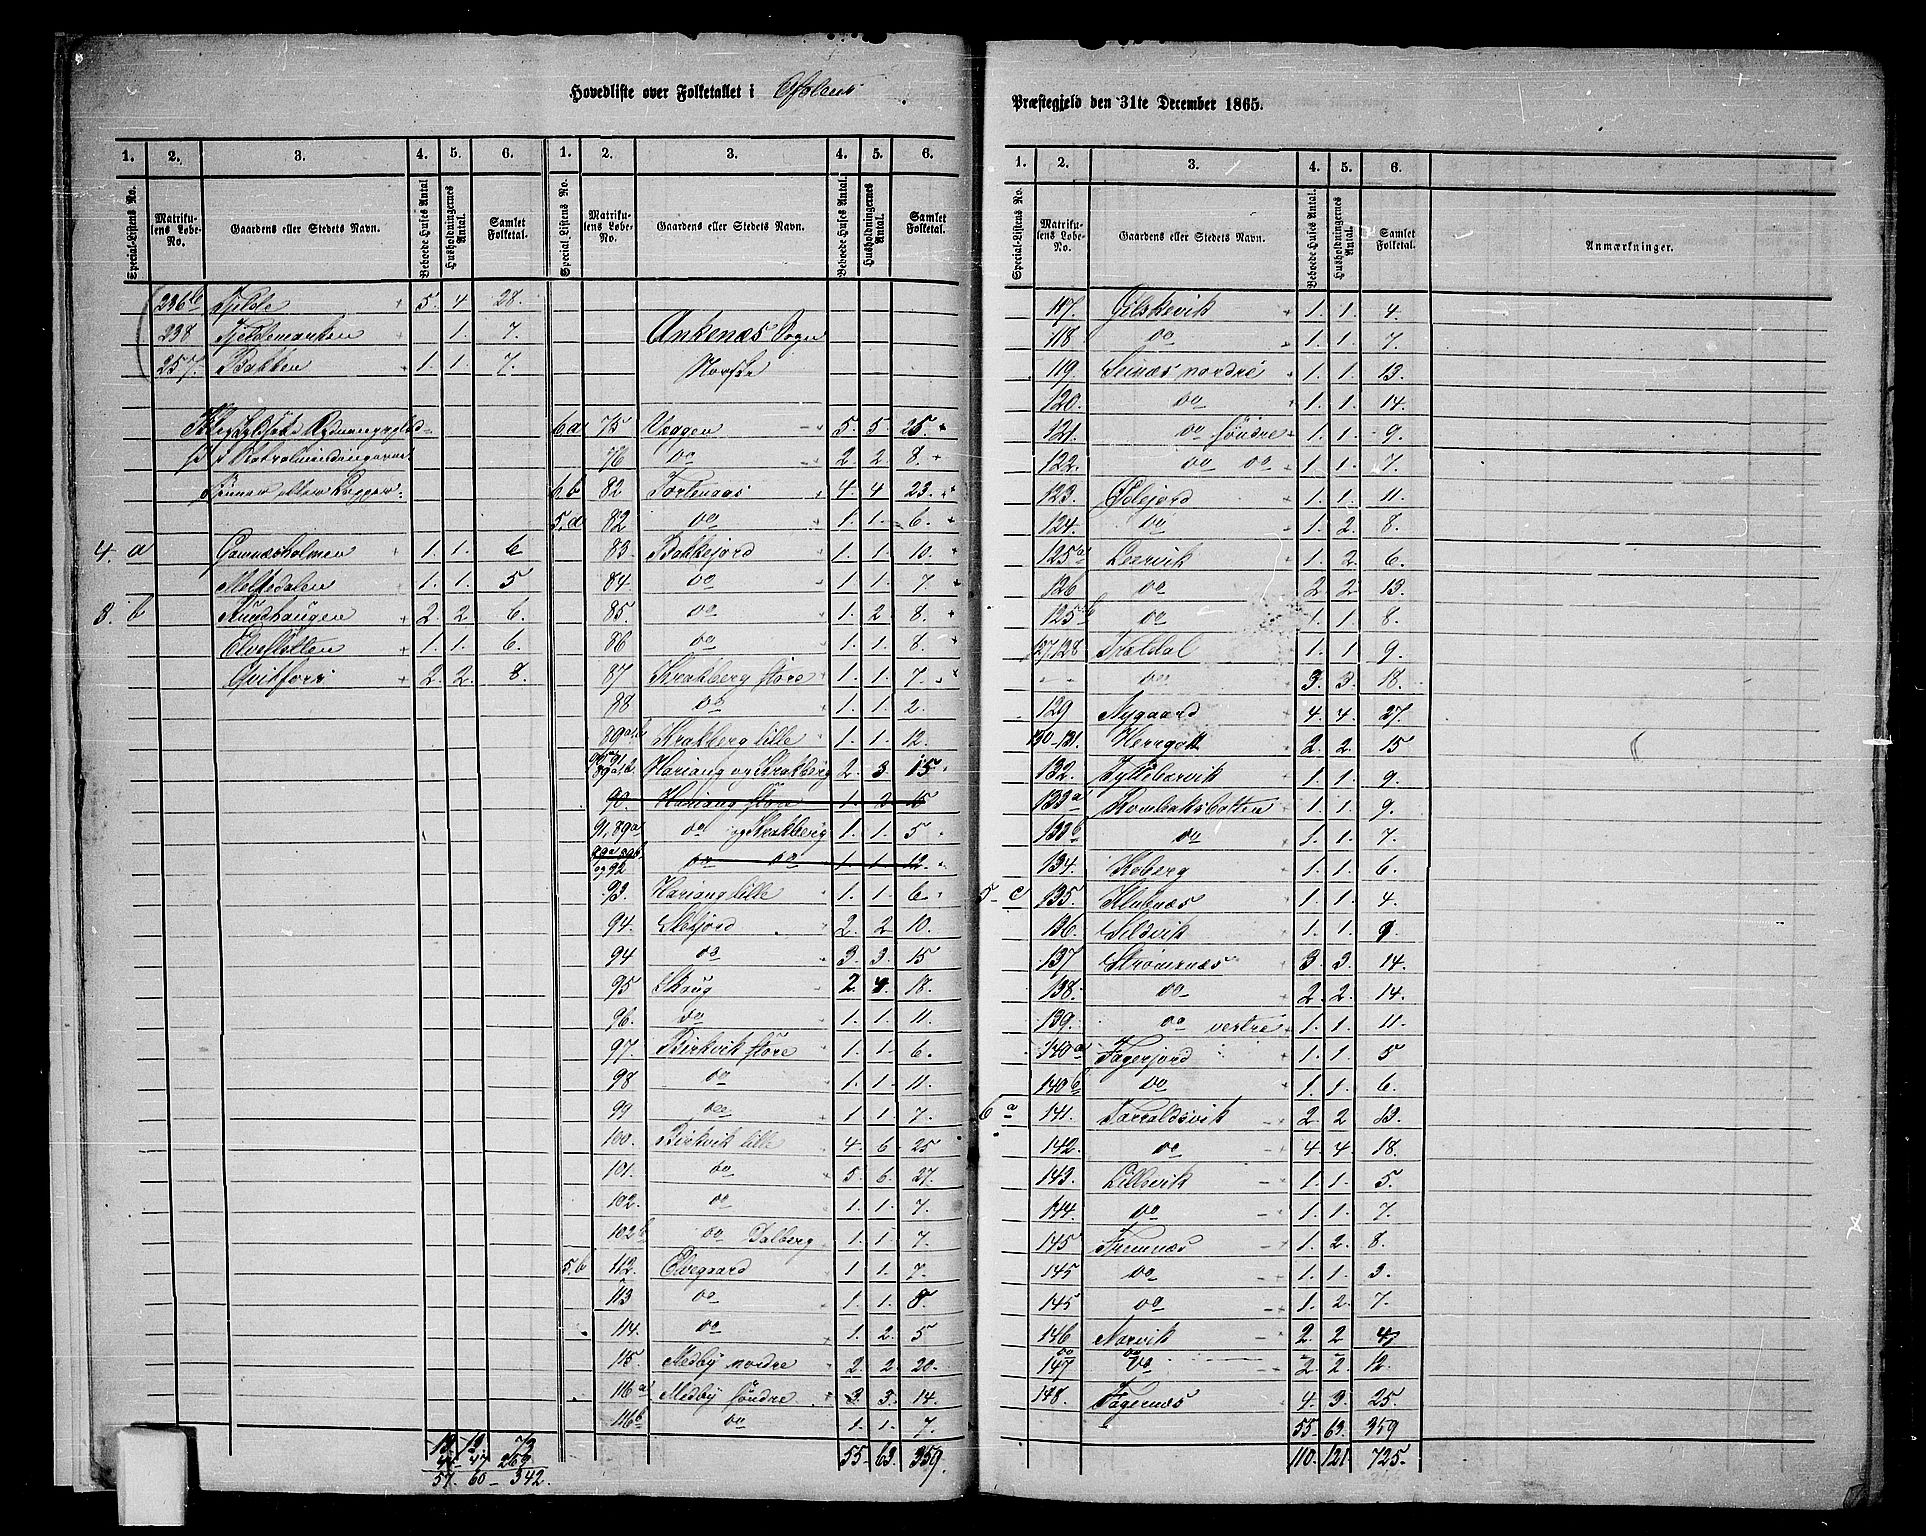 Hovedliste over Folketallet i Ofoten
Præstegjeld den 31te December 1865.
1. 2. 3. 4. 5. 6.
Special-Listens No. Matrikulens Løbe-No. Gaardens eller Stedets Navn. Beboede Huses Antal Husholdningernes Antal. Samlet Folketal.
236b Fjelde 5. 4 28.
238 Fjeldemarken 1. 7.
257. Bakken 1. 1. 7.
4. a Gamnesholmen 1. 1. 6
Melkedalen 1. 1. 5
8. b Sundhaugen 2. 2. 6.
Elvesletten 1. 1. 6.
Qvitfors 2. 2. 8.
13 13 73
44 47 269
57. 60 342.
1. 2. 3. 4. 5. 6.
Special Listens No. Matrikulens Løbe-No. Gaardens eller Stedets Navn. Beboede Huses Antal. Husholdningernes Antal. Samlet Folketal.
Ankenæs Sogn
Norske
6a 75 Væggen 5. 5. 25.
76 do 2. 2. 8.
6b 82 Fortenaas 4. 4 23.
5.a 82 do 1. 1. 6.
83. Bakkejord 1. 1. 10.
84. do 1. 1. 7.
85. do 1. 2 8.
86 do 1. 1. 8.
87. Krakberg store 1. 1. 7.
88 do 1. 1. 2.
89a.b Krakberg lille 1. 1. 12.
Hariang og Krakberg 2. 3. 15
90. Hariang store 1. 2 15
91, 89a do og Krakberg 1. 1. 5
og 92 do do 1. 1. 12.
93. Hariang lille 1. 1. 6
94. Skefjord 2. 2 10.
94 do 3. 3. 15
95 Skaug 2 4. 18.
96. do 1. 1. 11.
97. Birkvik store 1. 1. 6.
98 do 1. 1. 11.
99 do 1. 1. 7.
100. Birkvik lille 4. 6 25
101. do 5. 6. 27.
102. do 1. 1. 7.
102b do Dalberg 1. 1. 7.
5.b 112. Elvegaard 1. 1. 7.
113 do 1. 1. 8.
114. do 1. 2. 5
115. Medby nordre 2. 2. 20.
116a Medby søndre 3. 3. 14
116b do 1. 1. 7.
55. 63. 359.
1. 2. 3. 4. 5. 6.
Special-Listens No. Matrikulens Løbe-No. Gaardens eller Stedets Navn. Beboede Huses Antal. Husholdningernes Antal. Samlet Folketal. Anmærkninger.
117. Gilskevik 1. 1. 4.
118. do 1. 1. 7.
119. Seinæs nordre 1. 1. 13.
120. do 1. 1. 14.
121. do søndre 1. 1. 9.
122. do do 1. 1. 7.
123. Ølejord 1. 1. 11.
124. do 1. 2. 8.
125a Leervik 1. 2. 6.
126 do 2. 2. 13.
125b do 1. 1. 8.
127,128 Traldal 1. 1. 9.
- - do 3. 3. 18.
129 Nygaard 4. 4. 27.
130-131. Herregott 2. 2. 15
132. Tyttebærvik 1. 1. 9.
133a Rombaksbotten 1. 1. 9.
133b do 1. 1. 7.
134. Koberg 1. 1. 6.
5 c 135. Klubnæs 1. 1. 4.
136. Sildvik 1. 1. 9.
137. Stromsnæs 3. 3. 14.
138. do 2. 2. 14.
139. do vestre 1. 1. 11.
140a Fagerjord 1. 1. 5
140b do 1. 1. 6.
6 a 141. Taraldsvik 2. 2. 13.
142. do 4. 4. 18.
143. Lillevik 1. 1. 5.
144. do 1. 1. 7.
145. Fremnæs 1. 2. 8.
145 do 1. 1. 3.
145 do 1. 2. 7.
146 Narvik 2. 2. 4
147 do 2. 2. 12.
148. Fagernæs 4. 3. 25.
55. 63. 359
110. 121. 725.